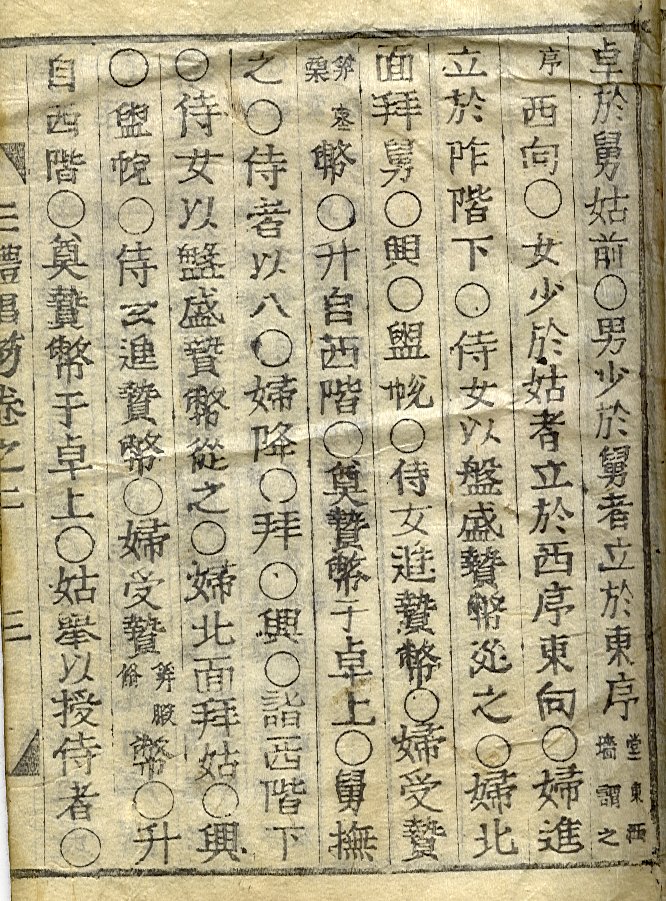 卓於舅姑前○男少於舅者立於東序堂東西墻謂之
序西向○女少於姑者立於西序東向○婦進
立於阼階下○侍女以盤盛贄幣從之○婦北
面拜舅○興○盥帨○侍女進贄幣○婦受贄
笲棗栗幣○升自西階○奠贄幣于卓上○舅撫
之○侍者以入○婦降○拜○興○詣西階下
○侍女以盤盛贄幣從之○婦北面拜姑○興
○盥帨○侍女進贄幣○婦受贄笲腶脩幣○升
自西階○奠贄幣于卓上○姑舉以授侍者○
三禮昌笏卷之二 三